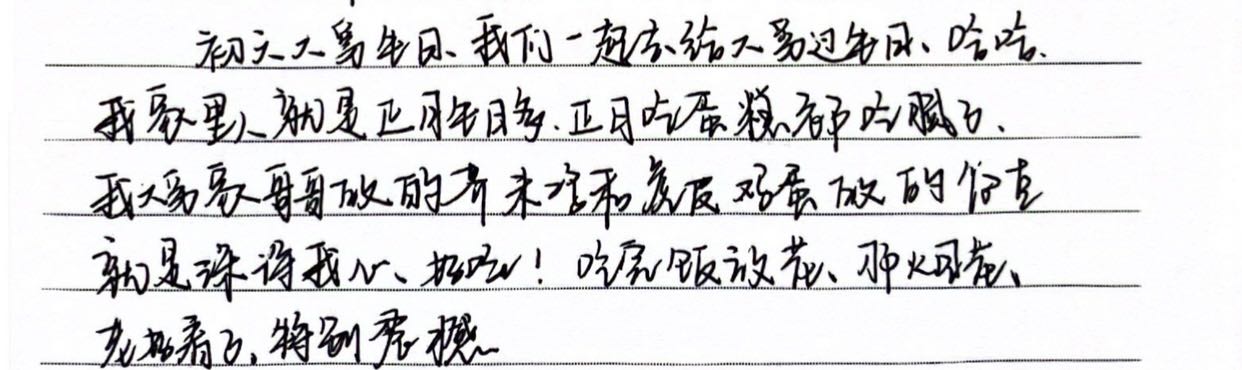 初六大舅生日、我们一起去给大舅过生日、哈哈.
我家里人就是正月生日多.正月吃蛋糕都吃腻了、
我大舅家哥哥做的芥末洋和虎皮鸡蛋做的简直
就是深得我心、好吃!吃完饭放花、那火烟花、
老好看了,特别震撼